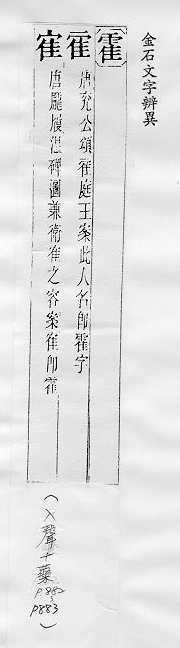 金石文字辨異
霍
唐兖公頌庭王案此人名卽霍字
寉
唐龐履温碑圖兼衛寉之容案寉卽霍
(入聲十藥
P882
P883)